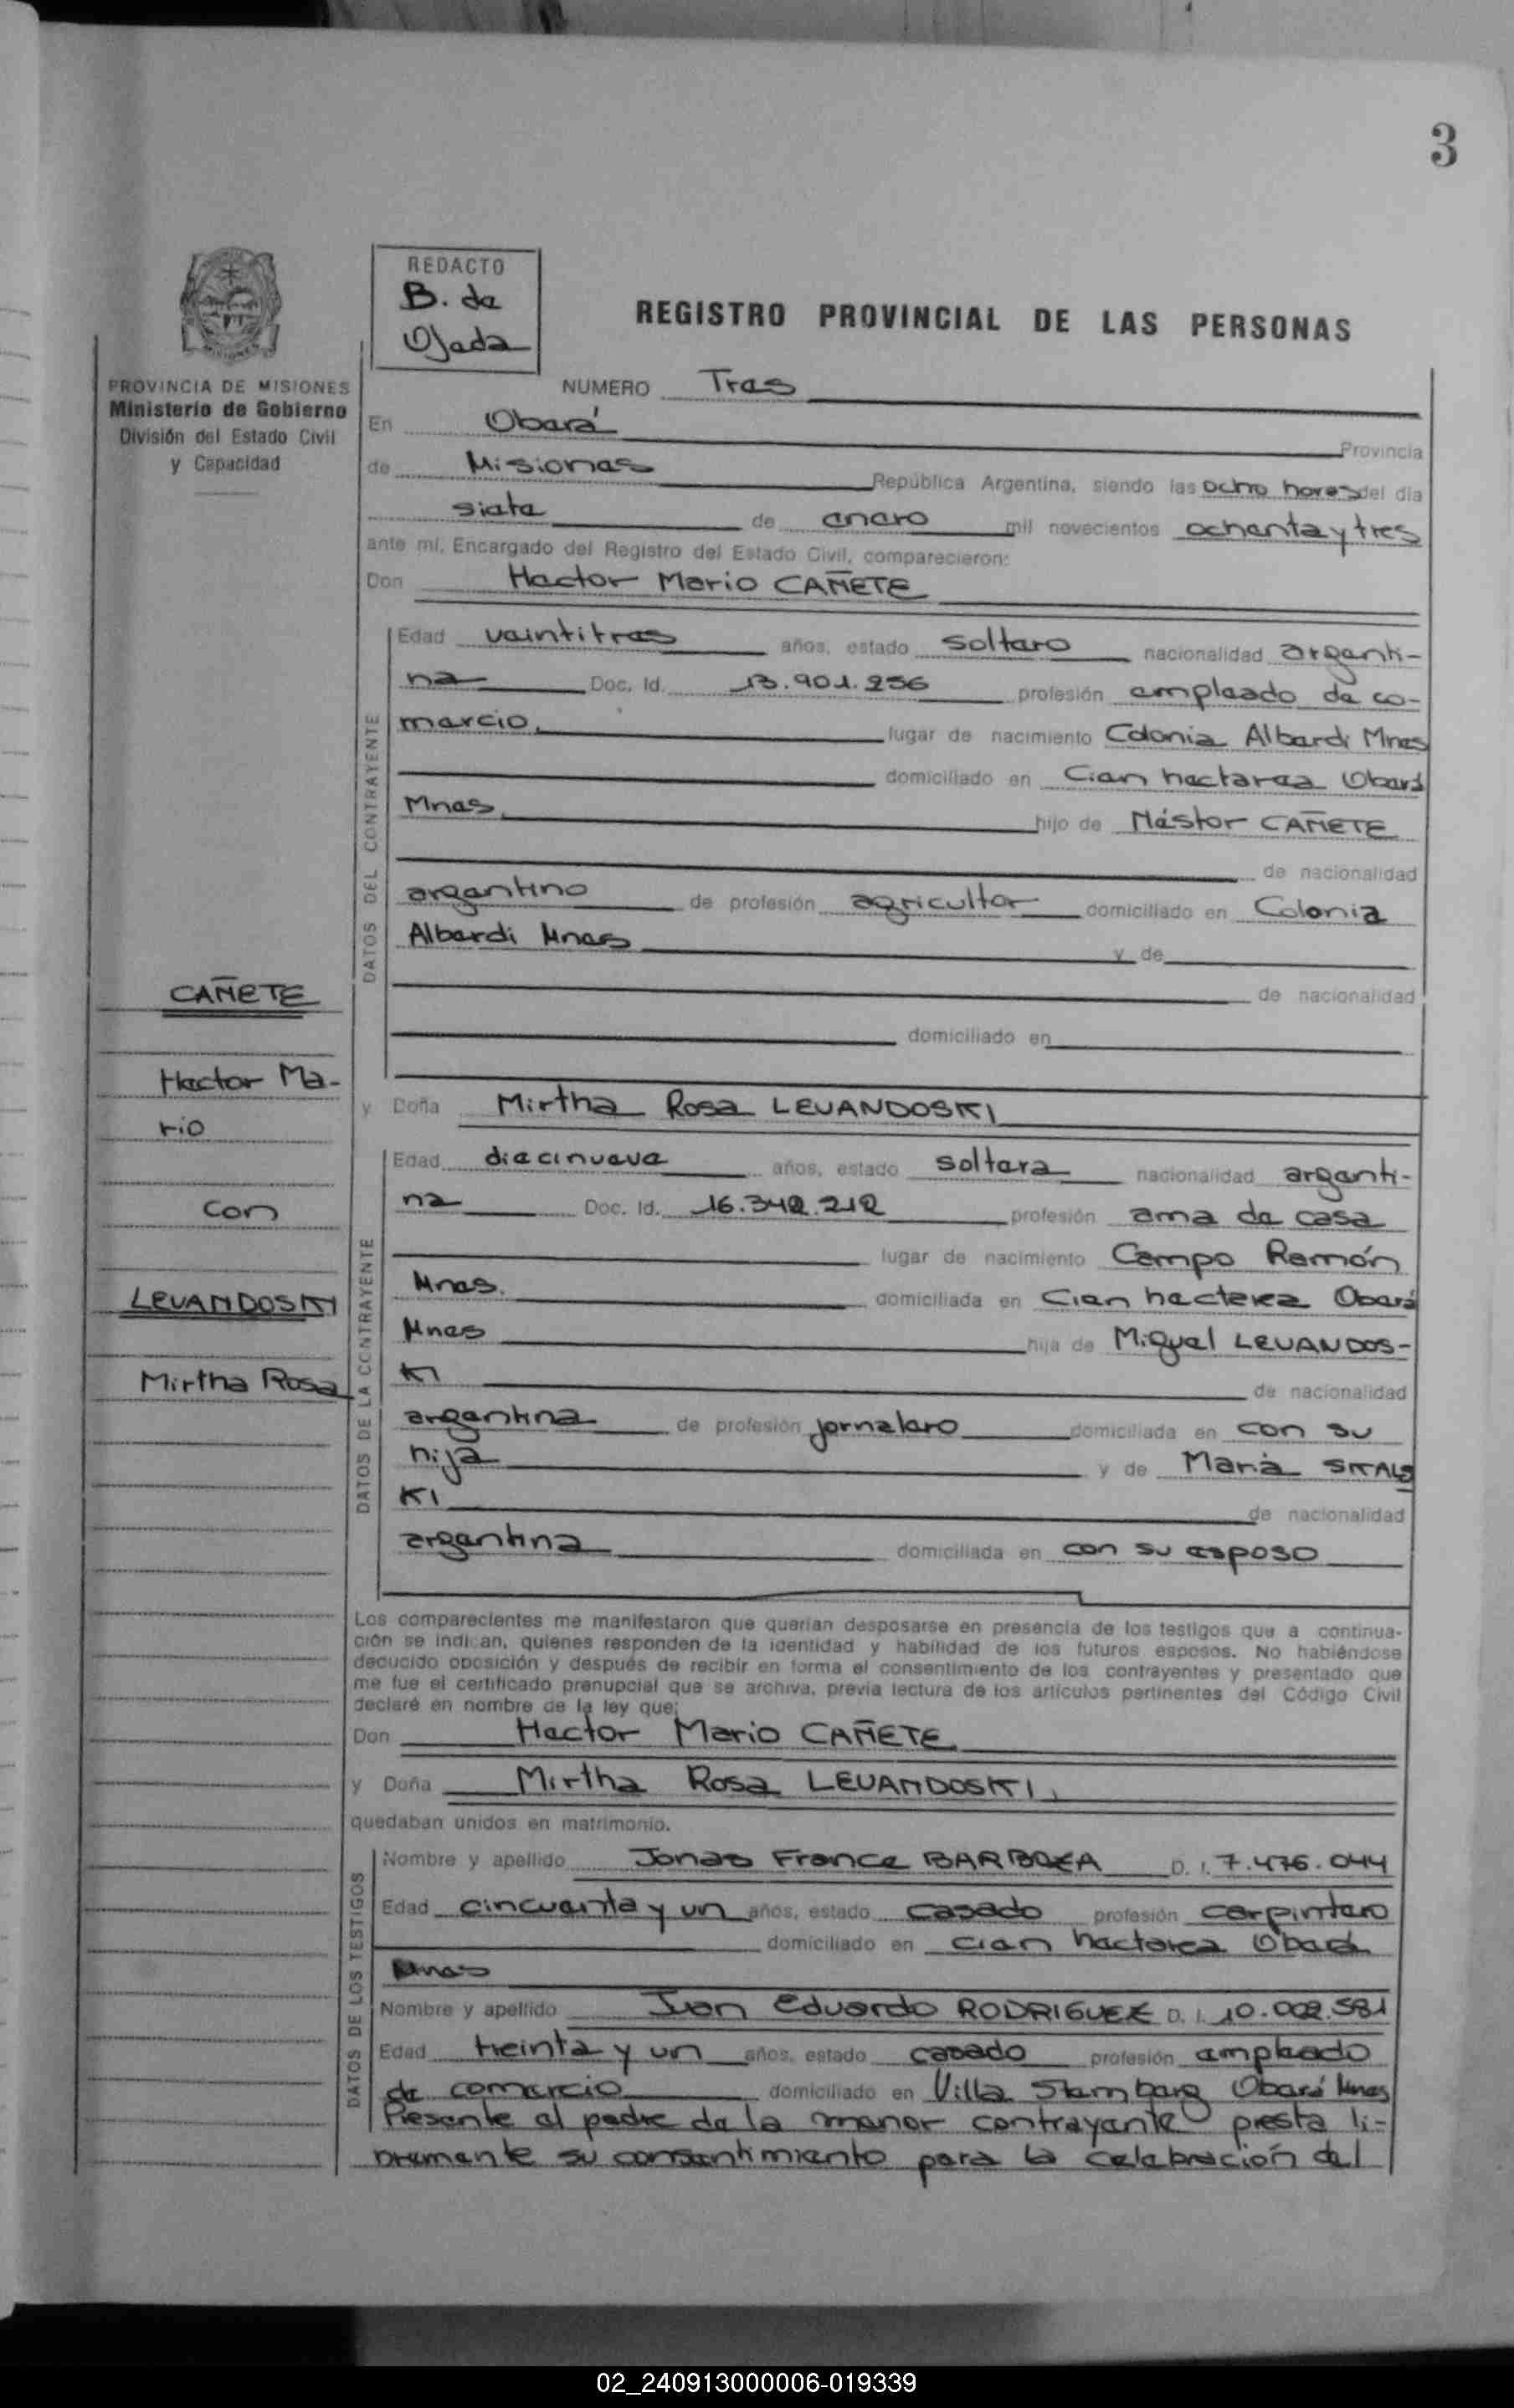 3
REDACTO
B. de
Ojeda
REGISTRO PROVINCIAL DE LAS PERSONAS
PROVINCIA DE MISIONES
Ministerio de Gobierno
División del Estado Civil
y Capacidad
NUMERO Tres
En Oberá Provincia
de Misiones República Argentina, siendo las ocho horas del día
siete de enero mil novecientos ochenta y tres
ante mí, Encargado del Registro del Estado Civil, comparecieron:
Don Hector Mario CAÑETE
DATOS DEL CONTRAYENTE
Edad veintitres años, estado soltero nacionalidad argenti-
na Doc. Id. 13.901.256 profesión empleado de co-
mercio, lugar de nacimiento Colonia Alberdi Mnes
domiciliado en Cien hectarea Oberá
Mnes, hijo de Néstor CAÑETE
de nacionalidad
argentino de profesión agricultor domiciliado en Colonia
Alberdi Mnes y de
de nacionalidad
domiciliado en
CAÑETE
Hector Ma-
rio
con
LEVANDOSKI
Mirtha Rosa
y Doña Mirtha Rosa LEVANDOSKI
DATOS DE LA CONTRAYENTE
Edad diecinueve años, estado soltera nacionalidad argenti-
na Doc. Id. 16.342.212 profesión ama de casa
lugar de nacimiento Campo Ramón
Mnes. domiciliada en Cien hectarea Oberá
Mnes hija de Miguel LEVANDOS-
KI de nacionalidad
argentina de profesión jornalero domiciliada en con su
hija y de María
KI de nacionalidad
argentina domiciliada en con su esposo
Los comparecientes me manifestaron que querían desposarse en presencia de los testigos que a continua-
ción se indican, quienes responden de la identidad y habilidad de los futuros esposos. No habiéndose
deducido oposición y después de recibir en forma el consentimiento de los contrayentes y presentado que
me fue el certificado prenupcial que se archiva, previa lectura de los artículos pertinentes del Código Civil
declaré en nombre de la ley que:
Don Hector Mario CAÑETE
y Doña Mirtha Rosa LEVANDOSKI,
quedaban unidos en matrimonio.
DATOS DE LOS TESTIGOS
Nombre y apellido Jonas France D. I. 7.476.044
Edad cincuenta y un años, estado casado profesión carpintero
domiciliado en cien hectarea Oberá
Mnes
Nombre y apellido Juan Eduardo RODRIGUEZ D. I. 10.002.581
Edad treinta y un años, estado casado profesión empleado
de comercio domiciliado en Villa Stemberg Oberá Mnes
Presente el padre de la menor contrayente presta li-
bremente su consentimiento para la celebración del
02_240913000006-019339